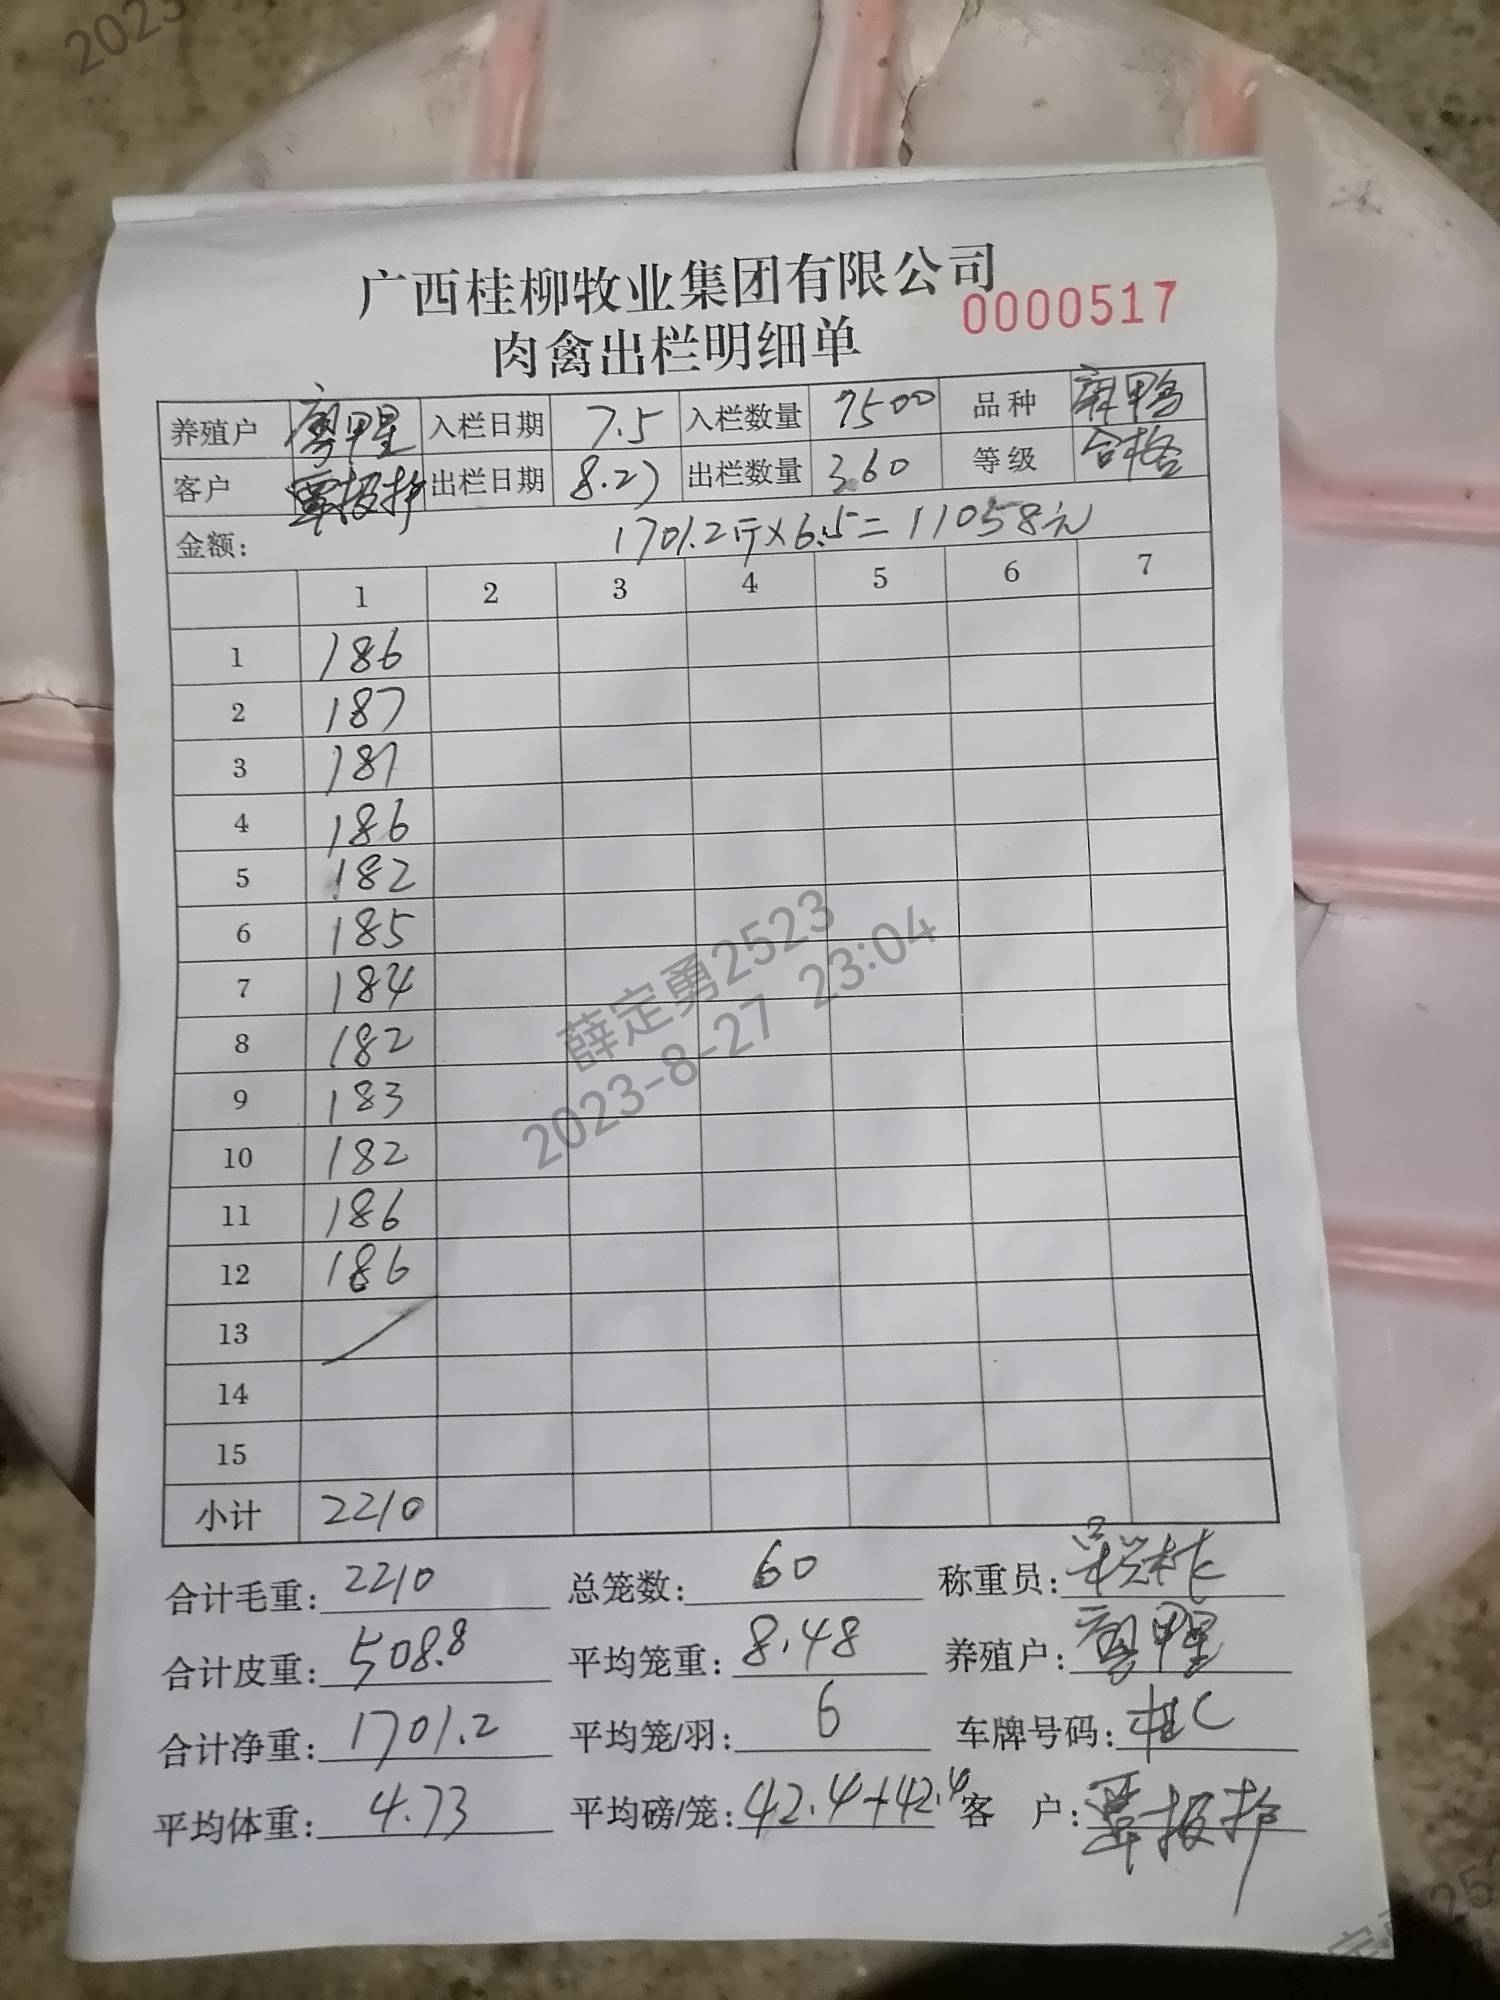 2023
广西桂柳牧业集团有限公司
0000517
肉禽出栏明细单
养殖户 入栏日期 7.5 入栏数量 7500 品种 麻鸭
客户 出栏日期 8.27 出栏数量 360 等级 合格
金额: 1701.2斤×6.5=11058元
1 2 3 4 5 6 7
1 186
2 187
3 181
4 186
5 182
6 185
7 184
8 182
9 183
10 182
11 186
12 186
13
14
15
小计 2210
薛定勇2523
2023-8-27 23:04
合计毛重: 2210 总笼数: 60 称重员:
合计皮重: 508.8 平均笼重: 8.48 养殖户:
合计净重: 1701.2 平均笼/羽: 6 车牌号码: 桂C
平均体重: 4.73 平均磅/笼: 42.4+42.4 客 户: